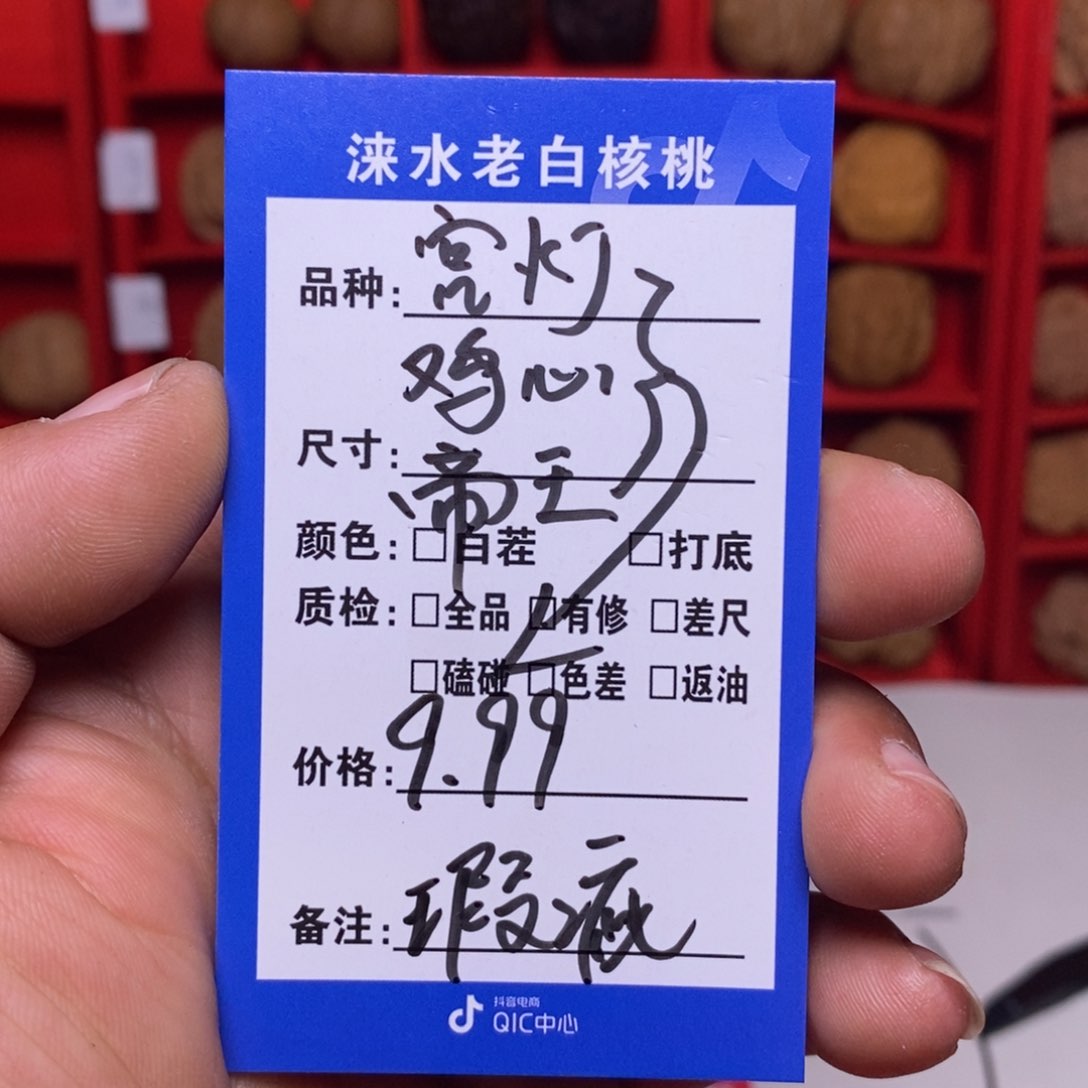 涞水老白核桃
品种: 宫灯
鸡心
尺寸: 帝王
颜色: □白茬 □打底
质检: □全品 □有修 □差尺
□磕碰 □色差 □返油
价格: 9.99
备注: 瑕疵
抖音电商
QIC中心